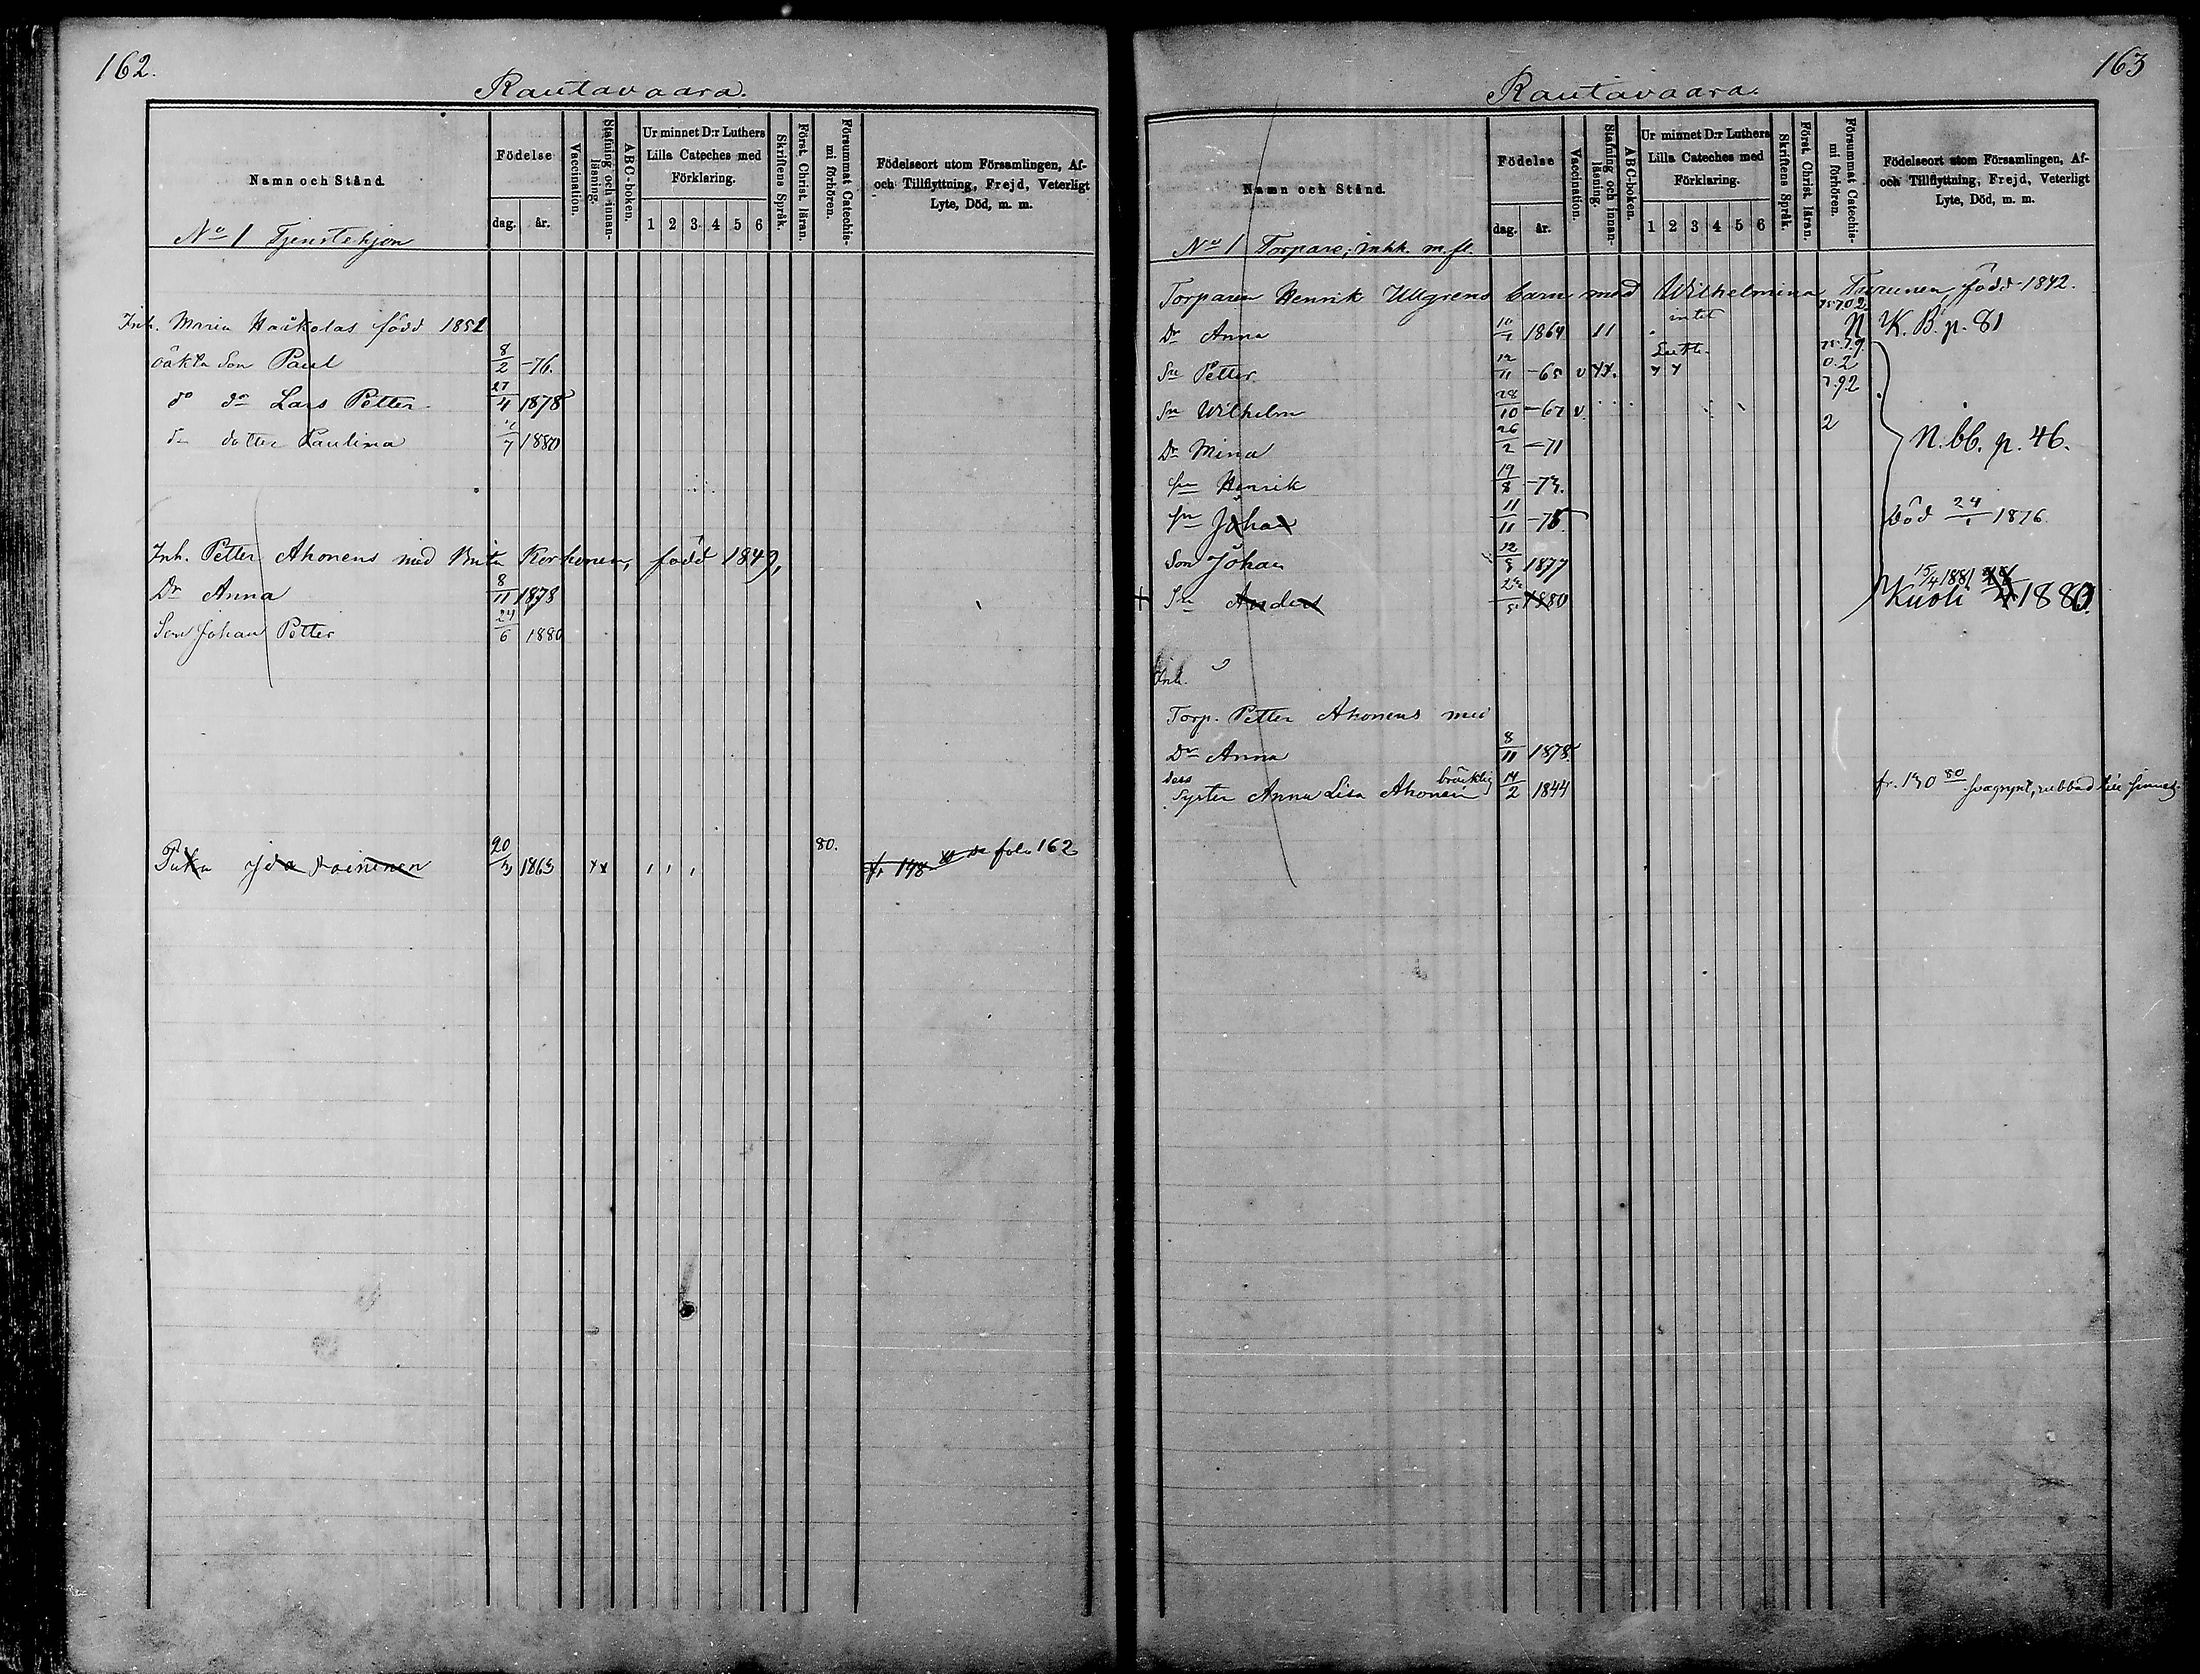 162.
Rautavaara.
Namn och Stånd
Födelse
dag. år.
Vaccination.
Stafning och innanläsning.
ABC-boken.
Ur minnet D:r Luthers Lilla Cateches med Förklaring.
1 2 3 4 5 6
Skriftens Språk.
Först. Christ. läran.
Försummat Catechismi förhören.
Födelseort utom Församlingen, Af- och Tillflyttning, Frejd, Veterligt Lyte, Död, m. m.
No 1 Tjenstehjon
Inh. Maria född 1852
oäkta Son Paul 8/2 -76.
do do Lars Petter 27/4 1878
dotter Paulina /7 1880
Inh. Petter Ahonens med Brita Korhonen, född 1849,
Dr Anna 8/11 1878
Son Johan Petter 24/6 1880
Ida 20/3 1863 80. fr 148 folio 162
163
Rautavaara.
Namn och Stånd.
Födelse
dag. år.
Vaccination.
Stafning och innanläsning.
ABC-boken.
Ur minnet D:r Luthers Lilla Cateches med Förklaring.
1 2 3 4 5 6
Skriftens Språk.
Först. Christ. läran.
Försummat Catechismi förhören.
Födelseort utom Församlingen, Af- och Tillflyttning, Frejd, Veterligt Lyte, Död, m. m.
No 1 Torpare, inhh. m fl.
Torparen Henrik Ullgrens barn med Wilhelmina Turunen, född 1842.
Dr Anna 1864 11 intet N K. B. p. 81
Sn Petter 12/11 -65 v
Sn Wilhelm 28/10 -67 v.
Dr Mina 26/2 -71 2 N. bb. p. 46.
Sn Henrik 19/8 -73.
Sn Johan 11/11 -75 Död 24/1 1876.
Son Johan 12/8 1877
+ Sn Anders 1880 Kuoli 15/4 1881 1880.
Inh.
Torp. Petter Ahonens med
Dr Anna 8/11 1878
dess Syster Anna Lisa Ahonen bräcklig 14/2 1844 fr. 190 80 svagsynt, rubbad till sinnet